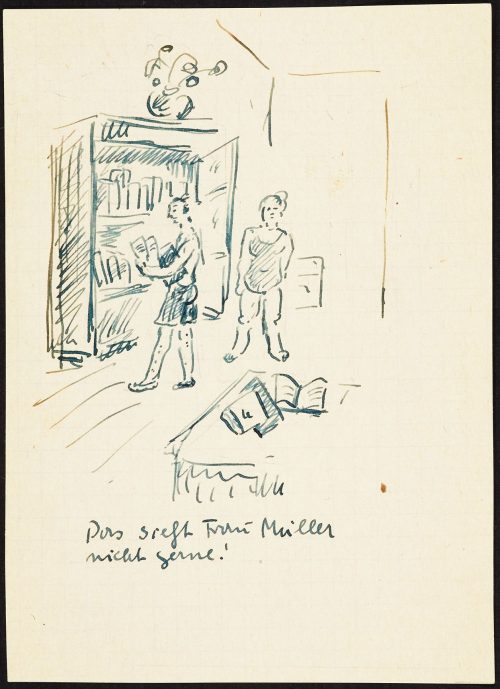 Das sieht Frau Müller
nicht gerne!